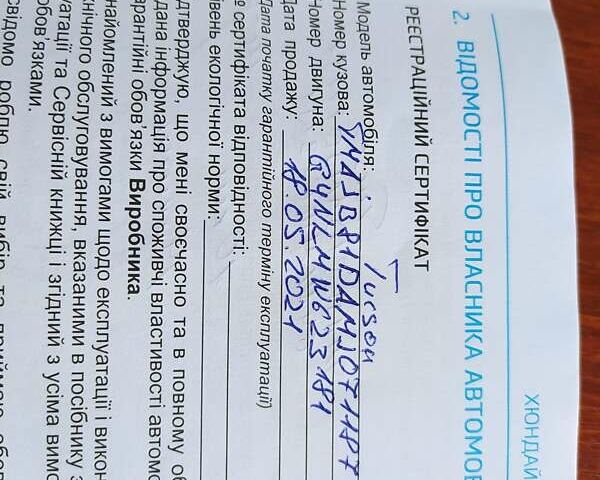 ХЮНДАЙ
2. ВІДОМОСТІ ПРО ВЛАСНИКА АВТОМОБ
РЕЄСТРАЦІЙНИЙ СЕРТИФІКАТ
Модель автомобіля: Tucson
Номер кузова:
Номер двигуна: G4NLMW623181
Дата продажу: 18.05.2021
Дата початку гарантійного терміну експлуатації)
№ сертифіката відповідності:
івень екологічної норми:
дтверджую, що мені своєчасно та в повному об
дана інформація про споживчі властивості автомо
арантійні обов'язки Виробника.
найомлений з вимогами щодо експлуатації і викон
хнічного обслуговування, вказаними в посібнику з
уатації та Сервісній книжці і згідний з усіма вимо
обов'язками.
свідомо роблю свій вибір та приймаю